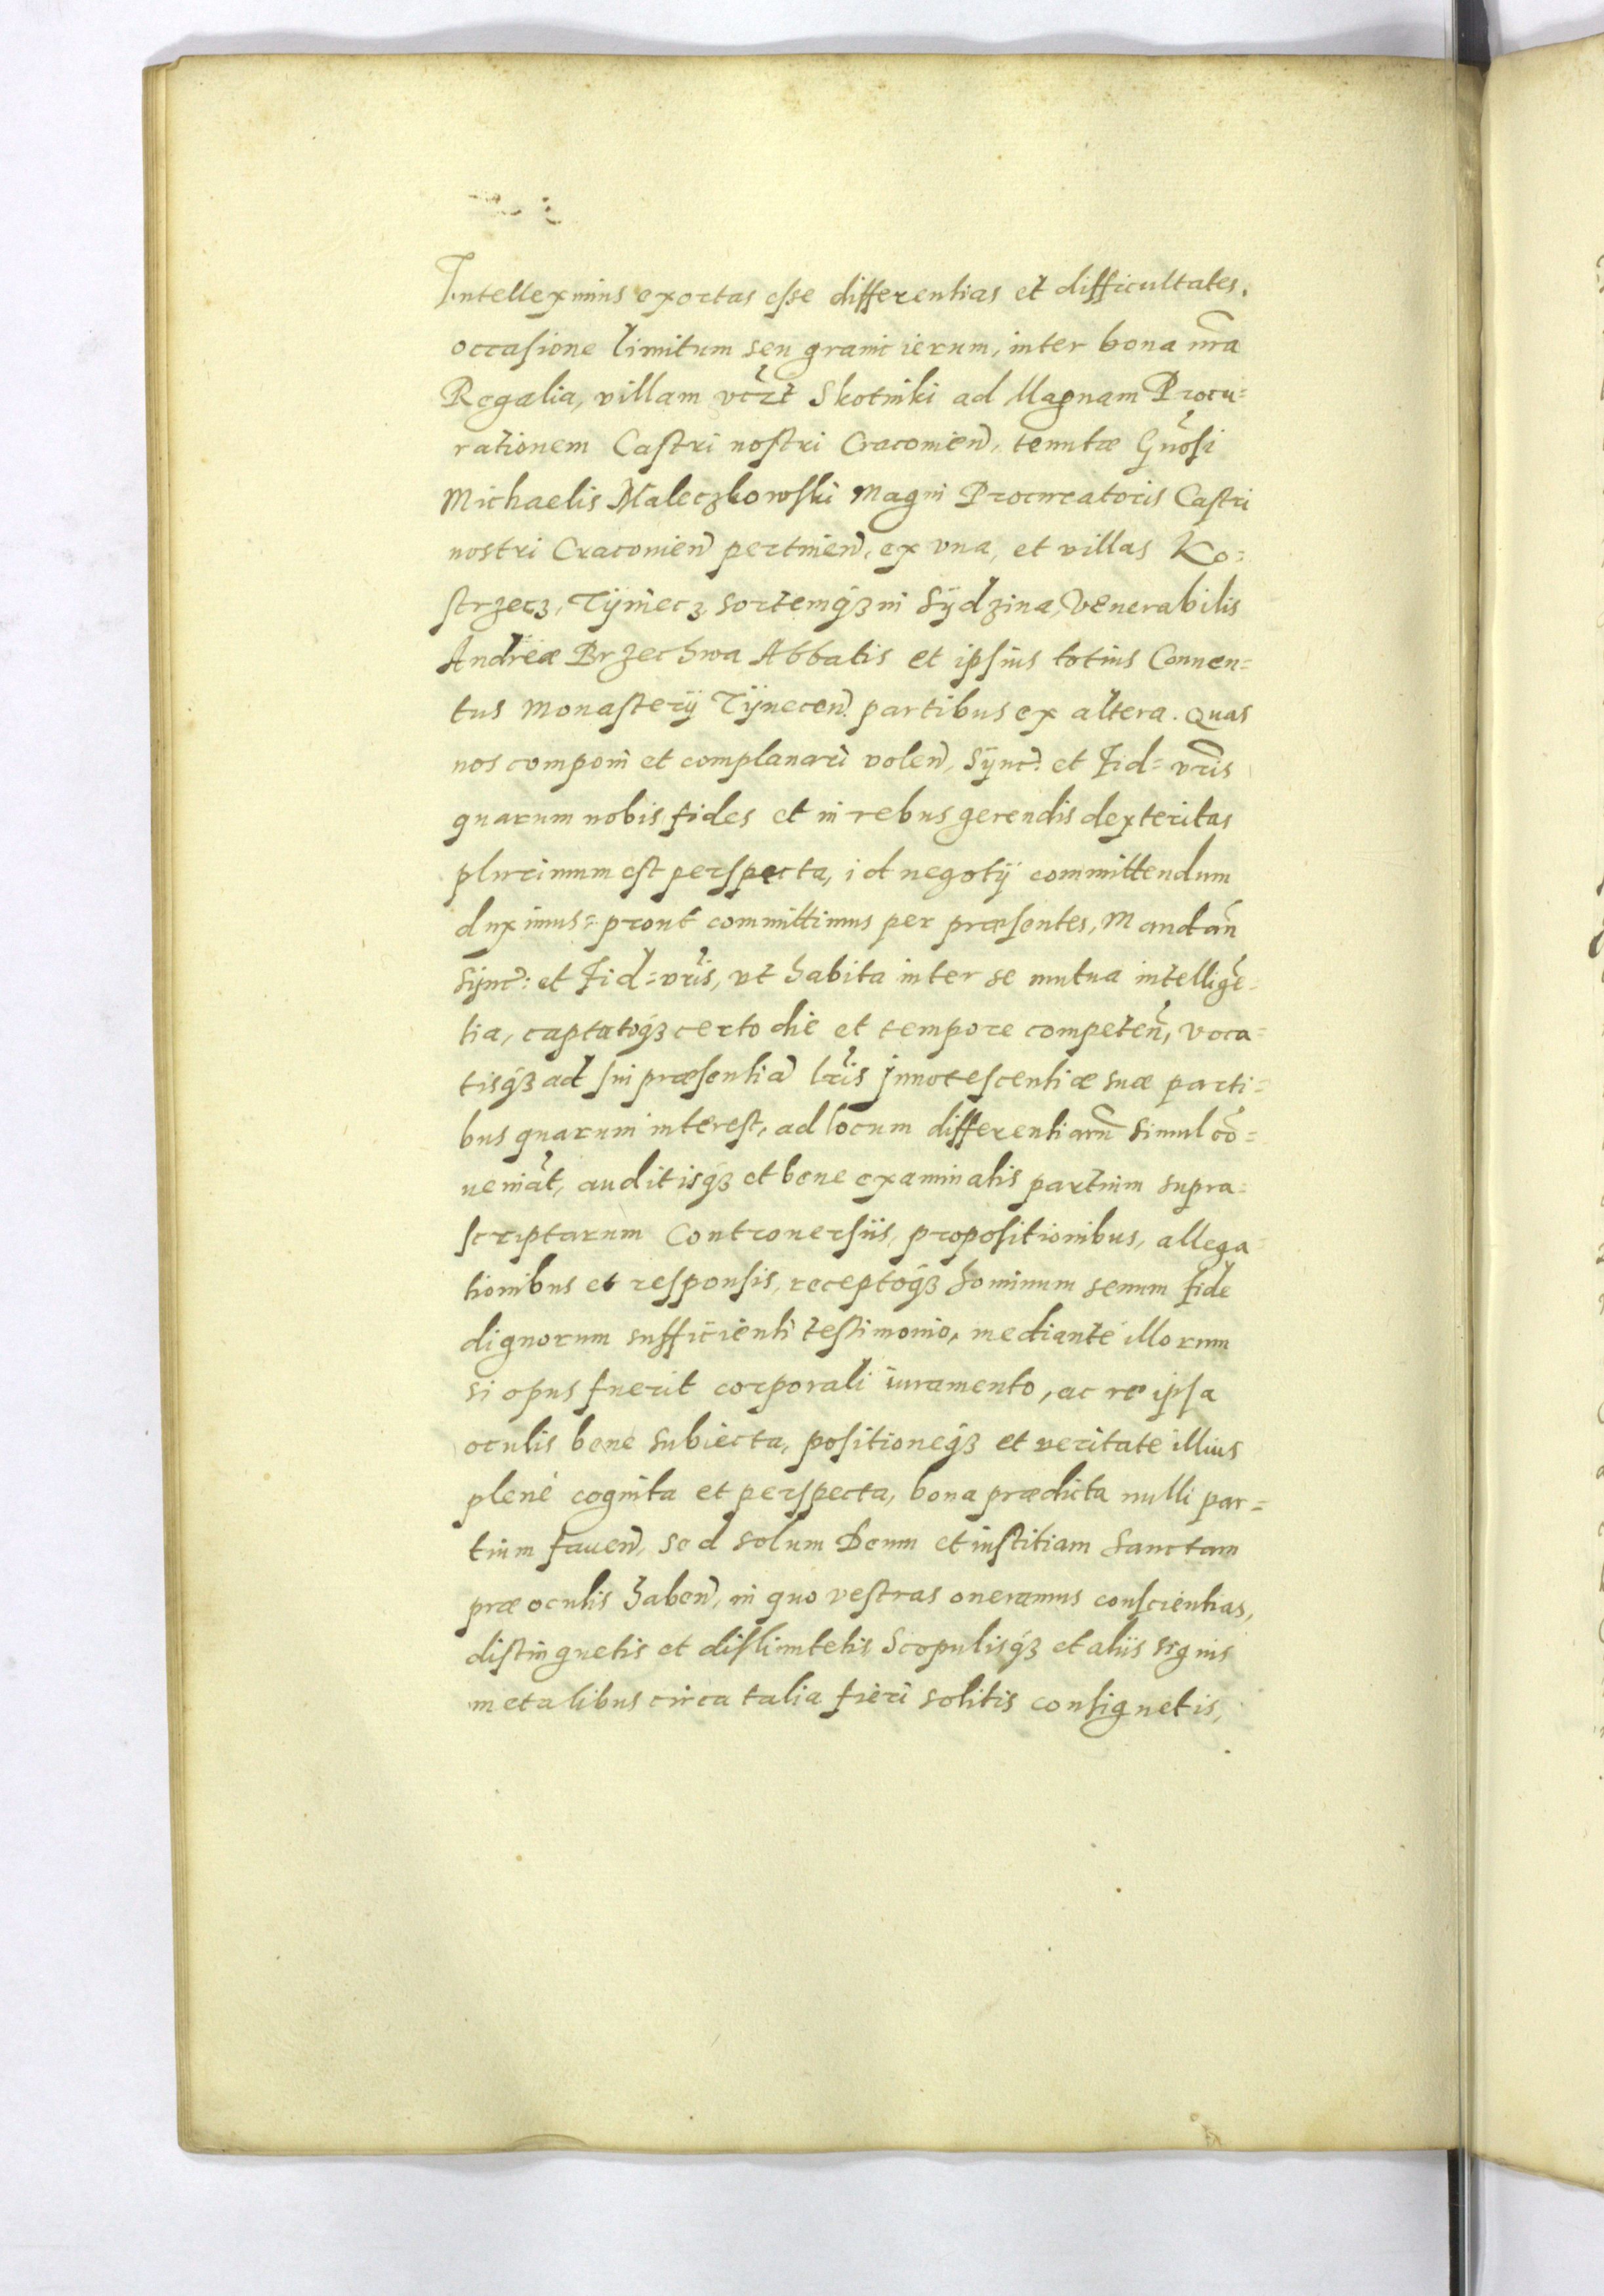 Intelleximus exortas esse differentias et difficultates,
occasione limitum seu granicierum, inter bona nr̃a
Regalia, villam vtz̃t Skotniki ad Magnam Procu=
rationem Castri nostri Cracouien̄, tenutæ Gñosi
Michaelis Maleczkowski Magni Procuratoris Castri
nostri Cracouien̄ pertinen̄, ex vna, et villas Ko=
strzecz, Tÿniecz, sortemq́ꝫ in Sÿdzina, Venerabilis
Andreæ Brzechwa Abbatis et ipsius totius Conuen=
tus Monasterij Tÿnecen̄. partibus ex altera. Quas
nos componi et complanari volen̄, Sÿnc̃: et Fid= vr̃is
quarum nobis fides et in rebus gerendis dexteritas
plurimum est perspecta, id negotij committendum
duximus= prout committimus per præsentes, Mandañ
Sÿnc̃: et Fid=vr̃is, vt habita inter se mutua intelligẽ=
tia, captatoq́ꝫ certo die et tempore competeñ, voca=
tisq́ꝫ ad sui præsentiã lr̃is Jnnotescentiæ suæ parti=
bus quarum interest, ad locum differentiarũ simul cõ=
ueniãt, auditisq́ꝫ et bene examinatis partium supra=
scriptarum Controuersiis, propositionibus, allega=
tionibus et responsis, receptoq́ꝫ hominum senum fide
dignorum sufficienti testimonio, mediante illorum
si opus fuerit corporali iuramento, ac re ipsa
oculis bene subiecta, positioneq́ꝫ et veritate illius
plenè cognita et perspecta, bona prædicta nulli par=
tium fauen̄, sed solum Deum et iustitiam sanctam
præ oculis haben̄, in quo vestras oneramus conscientias,
distinguetis et dislimitetis, Scopulisq́ꝫ et aliis signis
metalibus circa talia fieri solitis consignetis,